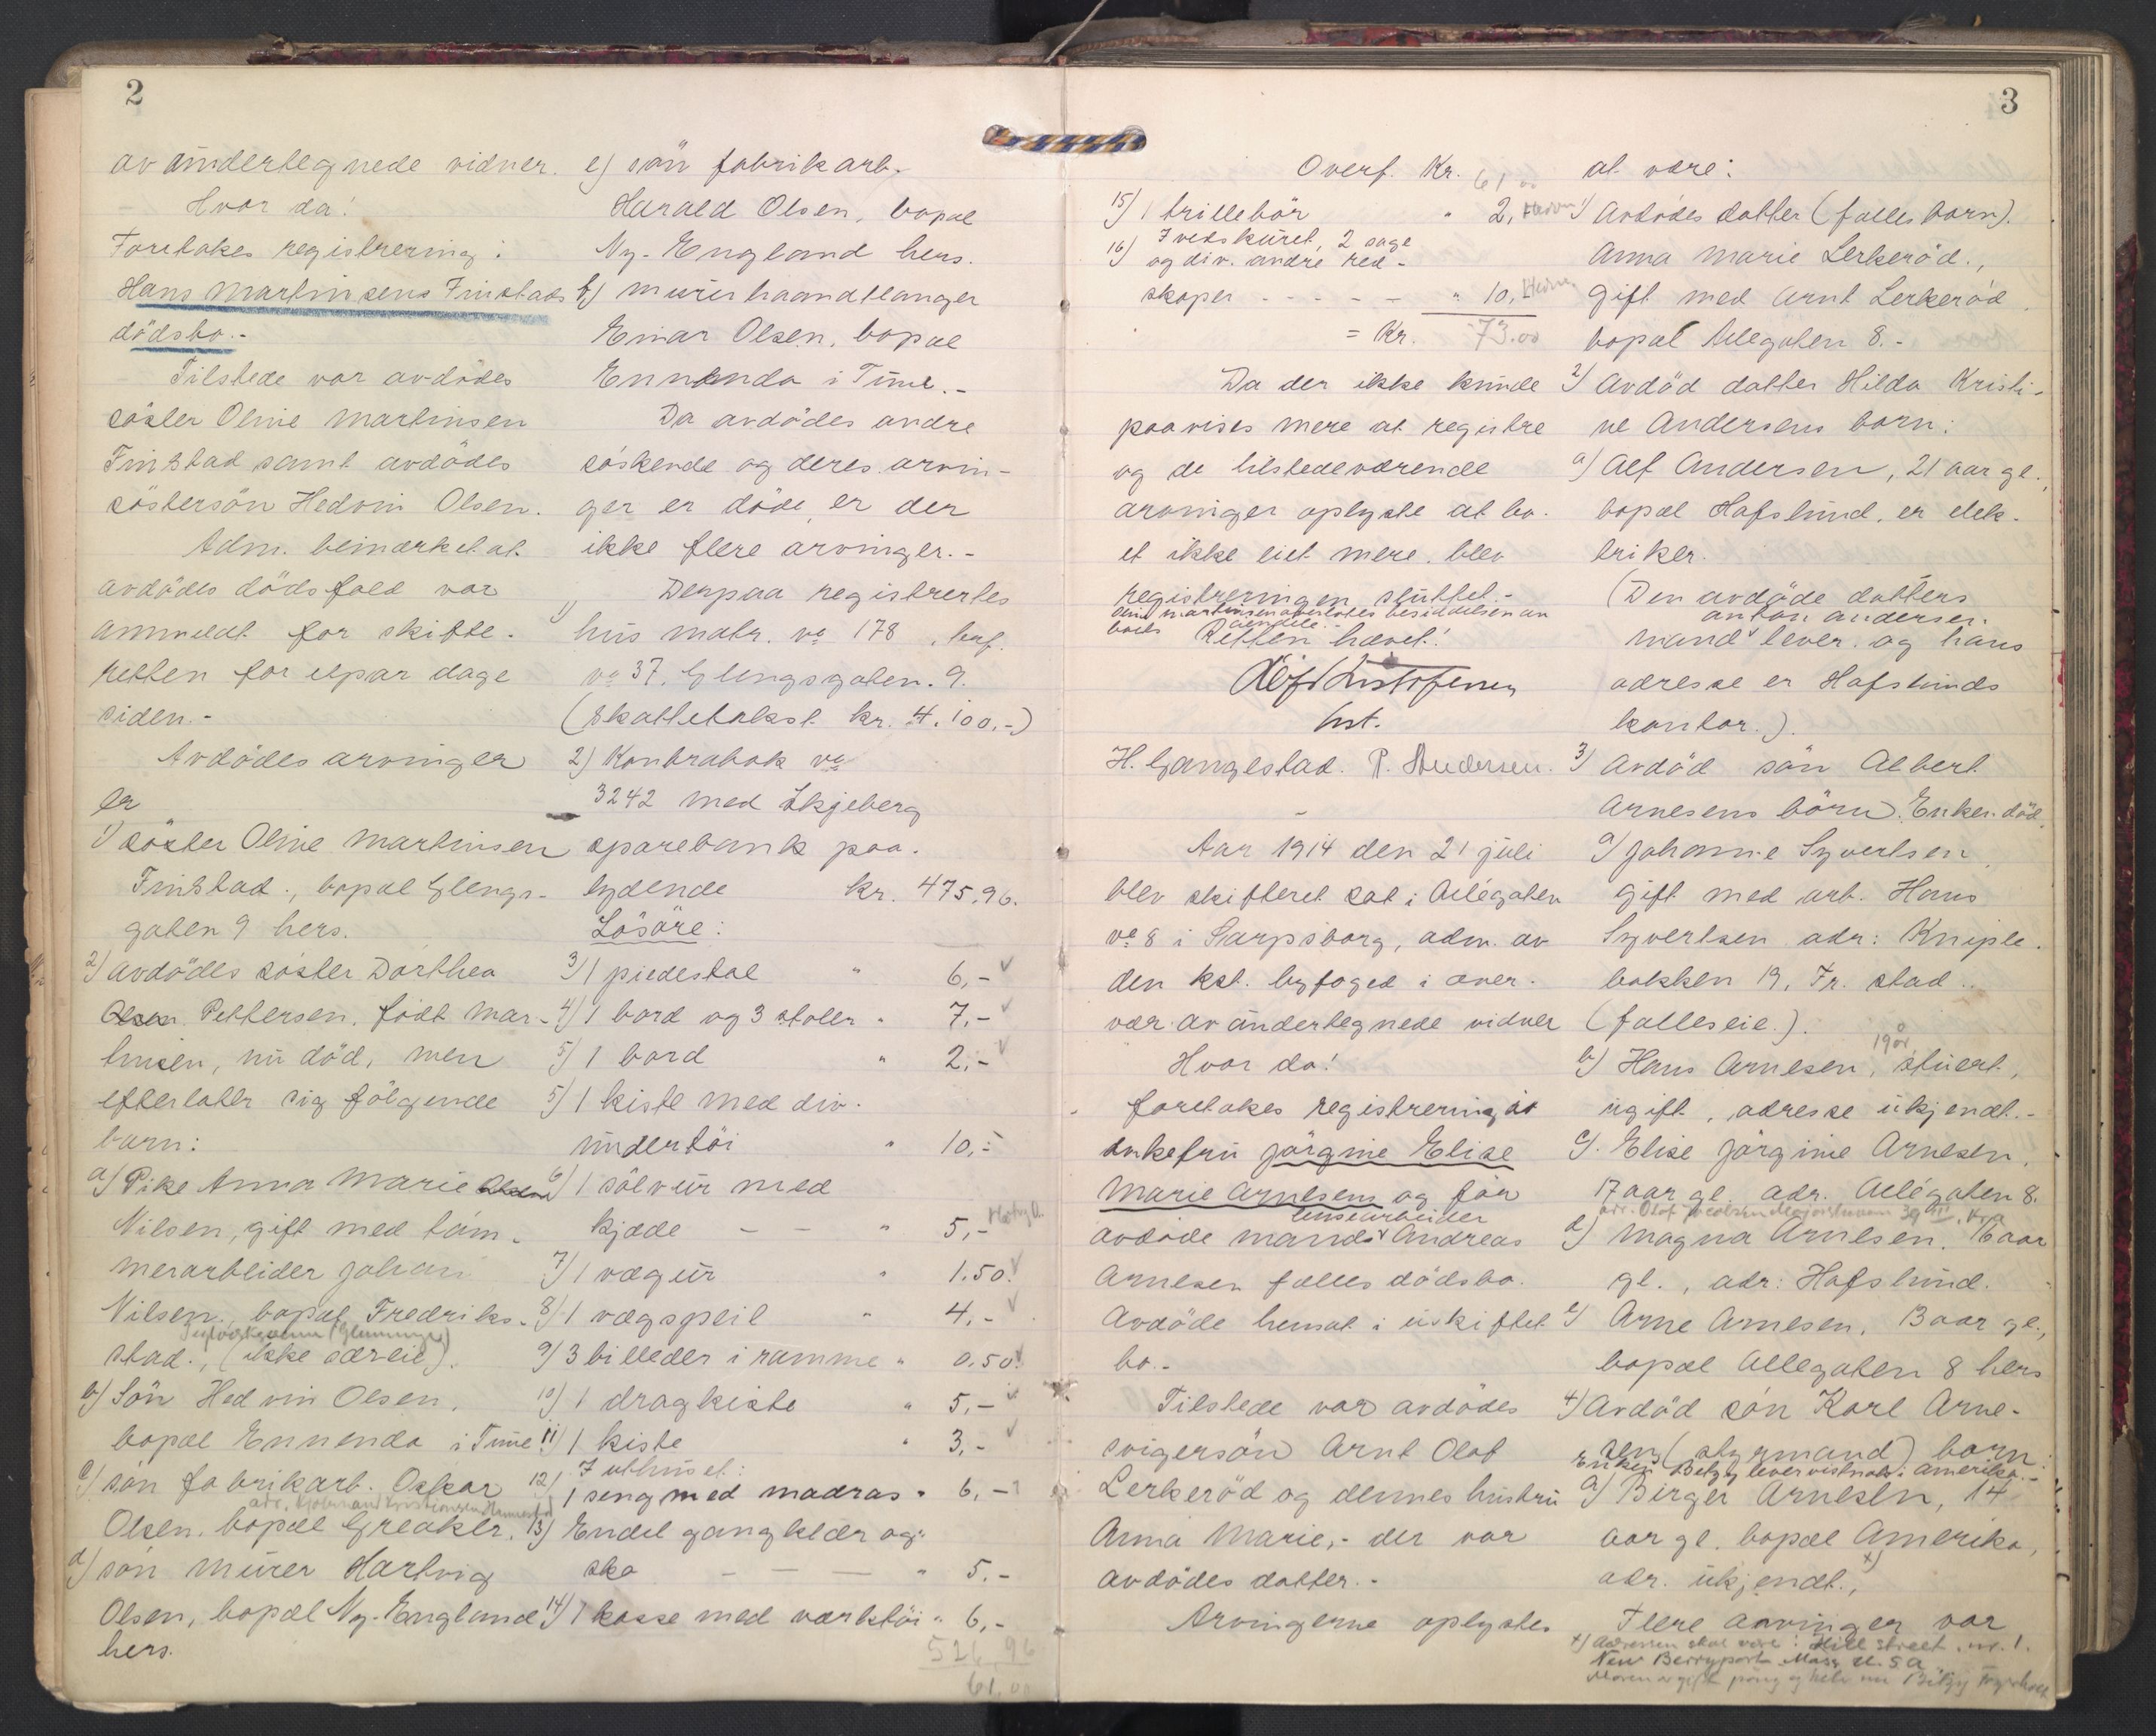 2
av undertegnede vidner.
Hvor da!
Foretokes registrering i
Hans Martinsens Finstads
dödsbo.-
Tilstede var avdödes
söster Oline Martinsen
Finstad samt avdödes
söstersön Hedvin Olsen.
Adm. bemærket at
avdödes dödsfald var
anmeldt for skifte-
retten for etpar dage
siden.-
Avdödes arvinger
er
1) söster Oline Martinsen
Finstad., bopæl Glengs-
gaten 9 hers.
2) avdödes söster Dorthea
Olsen. Pettersen, födt Mar-
tinsen, nu död, men
efterlater sig fölgende
barn:
a) Pike Anna Marie Olsen
Nilsen, gift med töm-
merarbeider Johan
Nilsen, bopæl Fredriks-
stad., (ikke særeie).
b) Sön Hedvin Olsen,
bopæl Ennenda i Tune
c) sön fabrikarb. Oskar
Olsen, bopæl Greaker.
d) sön murer Hartvig
Olsen, bopæl Ny-England
hers.
e) sön fabrikarb.
Harald Olsen, bopæl
Ny-England hers.
f) murerhaandtlanger
Einar Olsen, bopæl
Ennenda i Tune.-
Da avdödes andre
söskende og deres arvin-
ger er döde, er der
ikke flere arvinger.-
Derpaa registrertes
1) hus matr. no 178, brf.
no 37, Glengsgaten. 9.
(Skattetakst kr. 4.100,-)
2) Kontrabok no
3242 med Skjeberg
sparebank paa-
lydende kr. 475,96.
Lösöre:
3) 1 piedestal " 6,-
4) 1 bord og 3 stoler " 7,-
5) 1 bord " 2,-
5) 1 kiste med div.
undertöi " 10,-
6) 1 sölvur med
kjæde - - " 5,-
7) 1 vægur " 1.50
8) 1 vægspeil " 4,-
9) 3 billeder i ramme " 0.50
10) 1 dragkiste " 5,-
11) 1 kiste " 3,-
I uthuset:
12) 1 seng med madras " 6,-
13) Endel gangklær og
sko - - - " 5.-
14) 1 kasse med værktöi " 6,-
526,96
61,00
3
Overf. Kr. 61 00
15) 1 trillebör " 2, Hedvin
16) I vedskuret, 2 sage
og div. andre red-
skaper - - - - - " 10, Hedvin
= Kr. 73.00
Da der ikke kunde
paavises mere at registre
og de tilstedeværende
arvinger oplyste at bo-
et ikke eiet mere, blev
registreringen sluttet.-
Oline Martinsen overlotes besiddelsen av
boets eiendele.-
Retten hævet!
kst.
H. Gangestad. P. Andersen.
Aar 1914 den 21 juli
blev skifteret sat i Allégaten
no 8 i Sarpsborg, adm. av
den kst. byfoged i over-
vær av undertegnede vidner
Hvor da!
foretokes registrering as
enkefru Jörgine Elise
Marie Arnesens og för
lensearbeider
avdöde mands Andreas
Arnesen fælles dödsbo.
Avdöde hensat i uskiftet
bo.-
Tilstede var avdödes
svigersön Arnt Olaf
Lerkeröd og dennes hustru
Anna Marie,- der var
avdödes datter.-
Arvingerne oplystes
at være:
1) Avdödes datter (fælles barn).
Anna Marie Lerkeröd.,
gift med Arnt Lerkeröd
bopæl Allegaten 8.-
2) Avdöd datter Hilda Kristi-
ne Andersens barn:
a) Alf Andersen, 21 aar gl.,
bopæl Hafslund, er elek-
triker.
(Den avdöde datters
Anton Andersen.
mand lever, og hans
adresse er Hafslunds
kontor.).
3) Avdöd sön Albert
Arnesens börn. Enken död.
a) Johanne Syvertsen,
gift med arb. Hans
Syvertsen adr: Kniple-
bakken 19, Fr. stad..
(fælleseie.).
19 år
b) Hans Arnesen, stuert,
ugift, adresse ukjendt.-
c). Elise Jörgine Arnesen,
17 aar gl. adr. Allégaten 8.
d) Magna Arnesen. 16 aar
gl., adr: Hafslund.
e) Arne Arnesen, 13 aar gl.,
bopæl Allegaten 8 hers
4) Avdöd sön Karl Arne-
sens (styrmand) barn:
Enken Betzy lever vistnok i Amerika.-
a) Birger Arnesen, 14
aar gl. bopæl Amerika,
adr. ukjendt., x)
Flere arvinger var
x) Adressen skal være: Hill Street, nr. 1.
New Berryport Mass. U.S.A